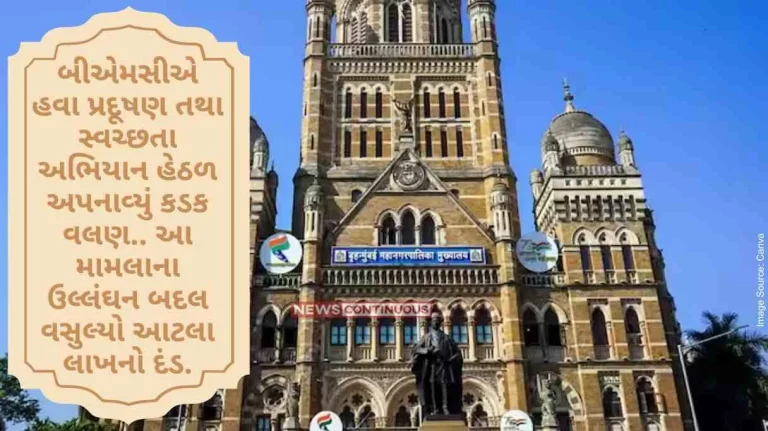 બીએમસીએ
હવા પ્રદૂષણ તથા
સ્વચ્છતા
અભિયાન હેઠળ
અપનાવ્યું કડક
વલણ.. આ
મામલાના
ઉલ્લંઘન બદલ
વસુલ્યો આટલા
લાખનો દંડ.
बृहन्मुंबई महानगरपालिका मुख्यालय
NEWS CONTINUOUS
Image Source: Canva